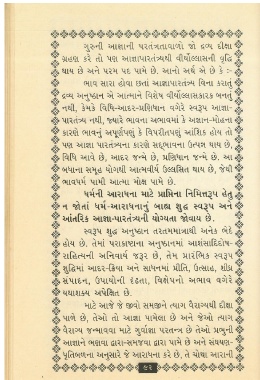 ગુરુની આજ્ઞાની પરતંત્રતાવાળો જો દ્રવ્ય દીક્ષા
ગ્રહણ કરે તો પણ આજ્ઞાપારતંત્ર્યથી વીર્યોલ્લાસની વૃદ્ધિ
થાય છે અને પરમ પદ પામે છે. આનો અર્થ એ છે કે :-
ભાવ સારા હોવા છતાં આજ્ઞાપારતંત્ર્ય વિના કરાતું
દ્રવ્ય અનુષ્ઠાન એ આત્માને વિશેષ વીર્યોલ્લાસકારક બનતું
નથી, કેમકે વિધિ-આદર-પ્રણિધાન વગેરે સ્વરૂપ આજ્ઞા-
પારતંત્ર્ય નથી, જ્યારે ભાવના અભાવમાં કે અજ્ઞાન-મોહના
કારણે ભાવનું અપૂર્ણપણું કે વિપરીતપણું આંશિક હોય તો
પણ આજ્ઞા પારતંત્ર્યના કારણે સદ્ભાવના ઉત્પન્ન થાય છે,
વિધિ આવે છે, આદર જન્મે છે, પ્રણિધાન જન્મે છે. આ
બધાના સમૂહ યોગથી આત્મવીર્ય ઉલ્લસિત થાય છે, જેથી
ભાવધર્મ પામી આત્મા મોક્ષ પામે છે.
ધર્મની આરાધના માટે પ્રાથિના નિમિત્તરૂપ હેતુ
ન જોતાં ધર્મ-આરાધનાનું બાહ્ય શુદ્ધ સ્વરૂપ અને
આંતરિક આજ્ઞા-પારતંત્ર્યની યોગ્યતા જોવાય છે.
સ્વરૂપ શુદ્ધ અનુષ્ઠાન તરતમમાત્રાથી અનેક ભેદે
હોય છે. તેમાં પરાકાષ્ઠાના અનુષ્ઠાનમાં આશંસાદિદોષ-
રાહિત્યની અનિવાર્ય જરૂર છે, તેમ પ્રારંભિક સ્વરૂપ
શુદ્ધિમાં આદર-ક્રિયા અને સાધનમાં પ્રીતિ, ઉત્સાહ, શીઘ્ર
સંપાદન, ઉપાયોની દૃઢતા, વિશેષિનો અભાવ વગેરે
યથાશક્ય અપેક્ષિત છે.
માટે આજે જે જીવો સમજીને ત્યાગ વૈરાગ્યથી દીક્ષા
પાળે છે, તેઓ તો આજ્ઞા પામેલા છે અને જેઓ ત્યાગ
વૈરાગ્ય જન્માવવા માટે ગુર્વાજ્ઞા પરતન્ત્ર છે તેઓ પ્રભુની
આજ્ઞાને ભણાવા દ્વારા-સમજવા દ્વારા પામે છે અને સંઘયણ-
ધૃતિબળના અનુસારે જે આરાધના કરે છે, તે ચોથા આરાની